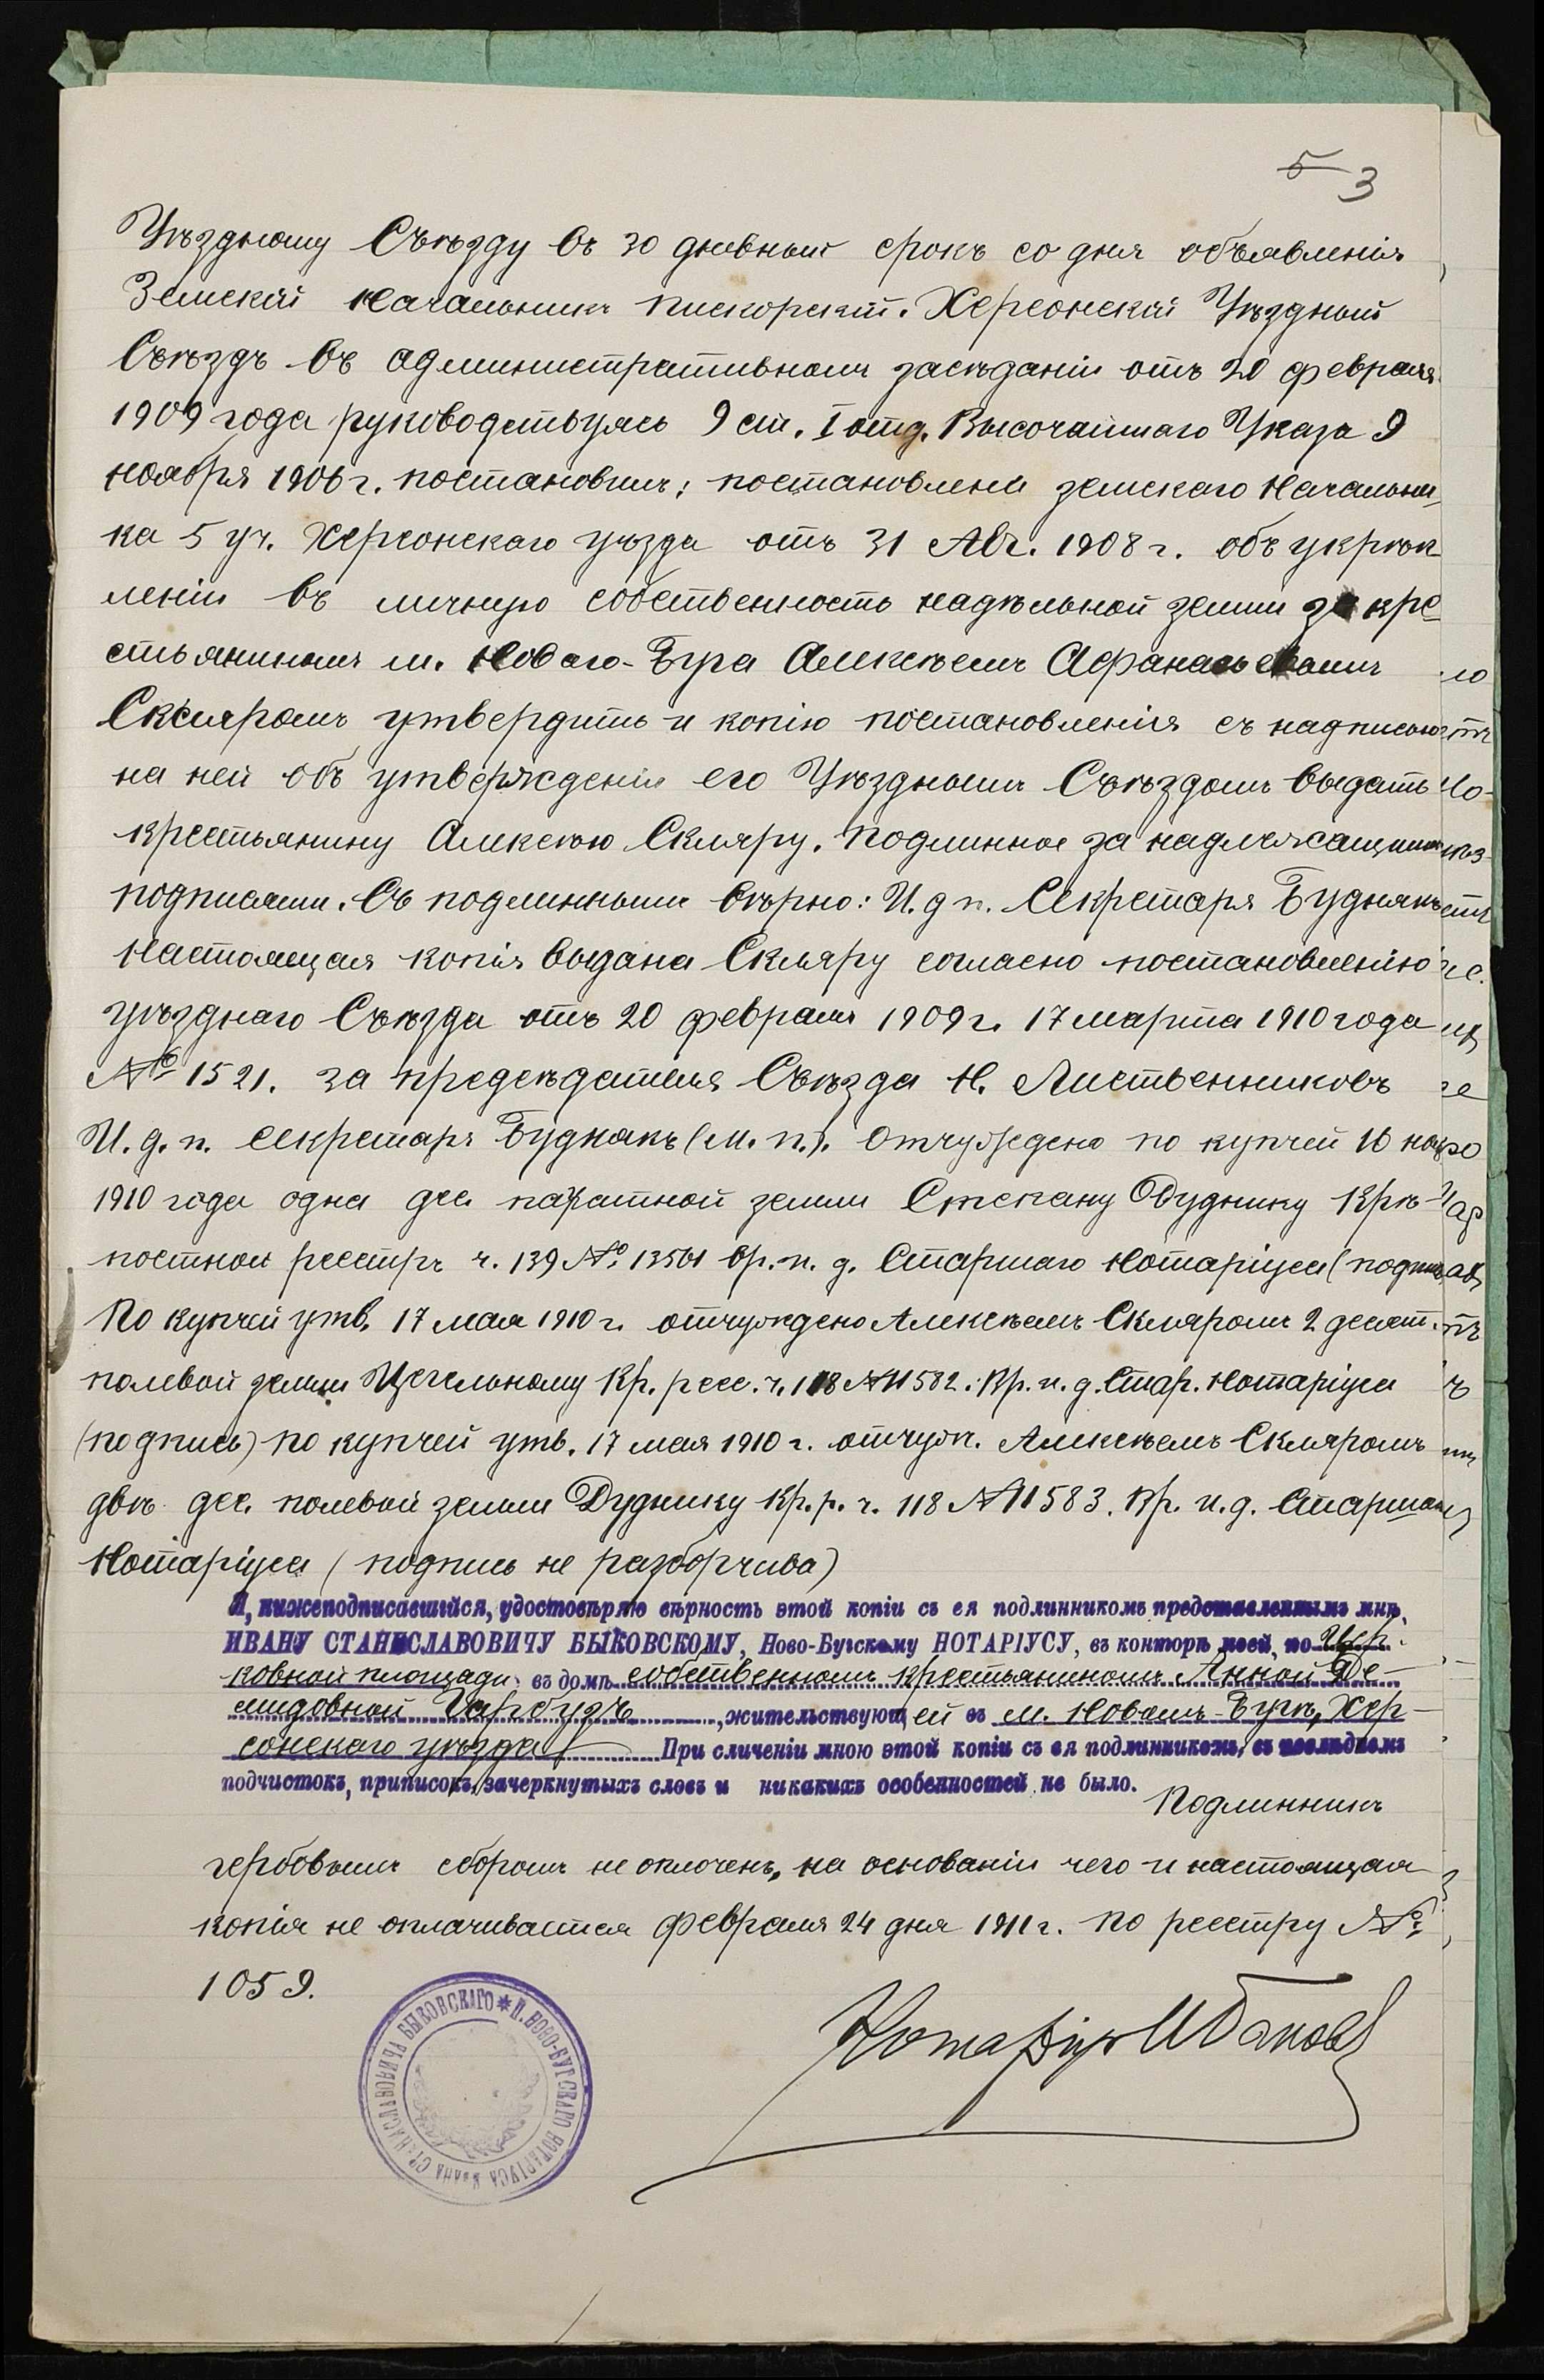 5 3
Уѣздному Съѣзду въ 30 дневный срокъ со дня объявленія
Земскій Начальникъ Пискорскій. Херсонскій Уѣздный
Съѣздъ въ административномъ засѣданіи отъ 20 февраля
1909 года руководствуясь 9 ст. I отд. Высочайшаго Указа 9
ноября 1906 г. постановилъ: постановленіе земскаго Начальни
ка 5 уч. Херсонскаго уѣзда отъ 31 Авг. 1908 г. объ укрѣп
леніи въ личную собственность надѣльной земли за кре
стьяниномъ м. Новаго-Буга Алексѣемъ Афанасьевымъ
Скляромъ утвердить и копію постановленія съ надписью
на ней объ утвержденіи его Уѣзднымъ Съѣздомъ выдать
крестьянину Алексѣю Скляру. Подлинное за надлежащими
подписями. Съ подлиннымъ вѣрно: И. д п. Секретаря Буднякъ
Настоящая копія выдана Скляру согласно постановленію
уѣзднаго Съѣзда отъ 20 февраля 1909 г. 17 марта 1910 года
№ 1521. За предсѣдателя Съѣзда Н. Лиственниковъ
И. д. п. Секретаря Буднякъ (М. п.). Отчуждено по купчей 16
1910 года одна дес. земли Степану Дуднику Крѣ-
постной реестръ ч. 139 № 13561 Вр. и. д. Старшаго Нотаріуса (подпись
По купчей утв. 17 мая 1910 г. отчуждено Алексѣемъ Скляромъ 2 десят.
полевой земли Цегельному Кр. рее. ч. 118 № 11582. Вр. и. д. Стар. Нотаріуса
(подпись) по купчей утв. 17 мая 1910 г. отчуж. Алексѣемъ Скляромъ
двѣ дес. полевой земли Дуднику Кр. р. ч. 118 № 11583. Вр. и. д. Старшаго
Нотаріуса (подпись не разборчива)
Я, нижеподписавшійся, удостовѣряю вѣрность этой копіи съ ея подлинникомъ представленнымъ мнѣ,
ИВАНУ СТАНИСЛАВОВИЧУ БЫКОВСКОМУ, Ново-Бугскому НОТАРІУСУ, въ конторѣ моей, по Цер
ковной площади, въ домѣ собственномъ крестьяниномъ Анной Де-
мидовной Гарбузъ, жительствующей въ м. Новомъ-Бугѣ, Хер-
сонскаго уѣзда При сличеніи мною этой копіи съ ея подлинникомъ, въ послѣднемъ
подчистокъ, приписокъ, зачеркнутыхъ словъ и никакихъ особенностей не было.
Подлинникъ
гербовымъ сборомъ не оплоченъ, на основаніи чего и настоящая
копія не оплачивается Февраля 24 дня 1911 г. По реестру №
1059.
Нотаріусъ
И. НОВО-БУГСКАГО НОТАРІУСА ИВАНА СТАНИСЛАВОВИЧА БЫКОВСКАГО